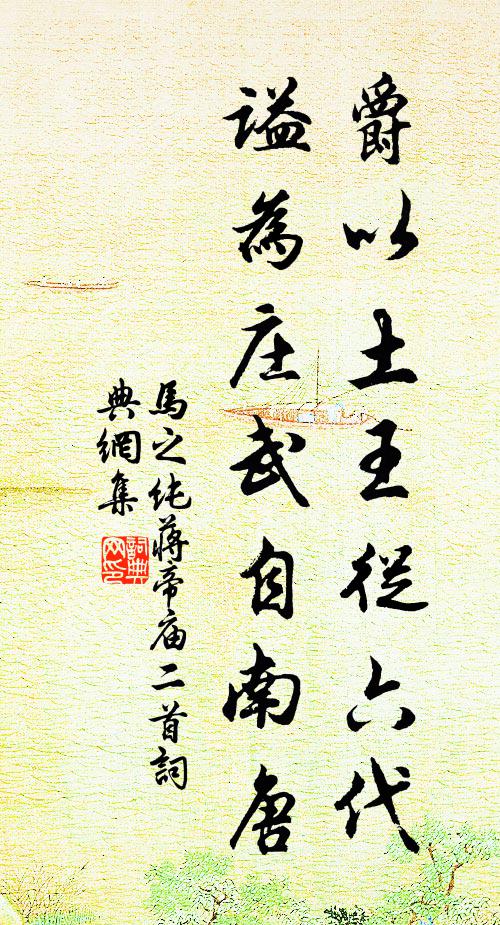 爵以土王從六代
謚為庄武自南唐
馬之純蔣帝庙二首詞
典網集
詞典
网印